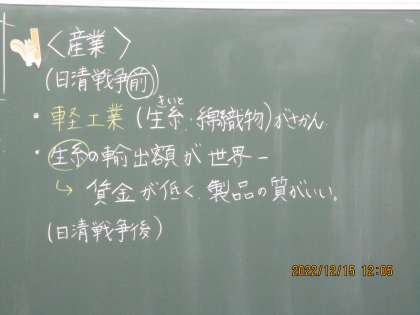 〈産業〉
(日清戦争前)
・軽工業(生糸・綿織物)がさかん
きいと
・生糸の輸出額が世界一
↳ 賃金が低く、製品の質がいい。
(日清戦争後)
2022/12/15 12:05